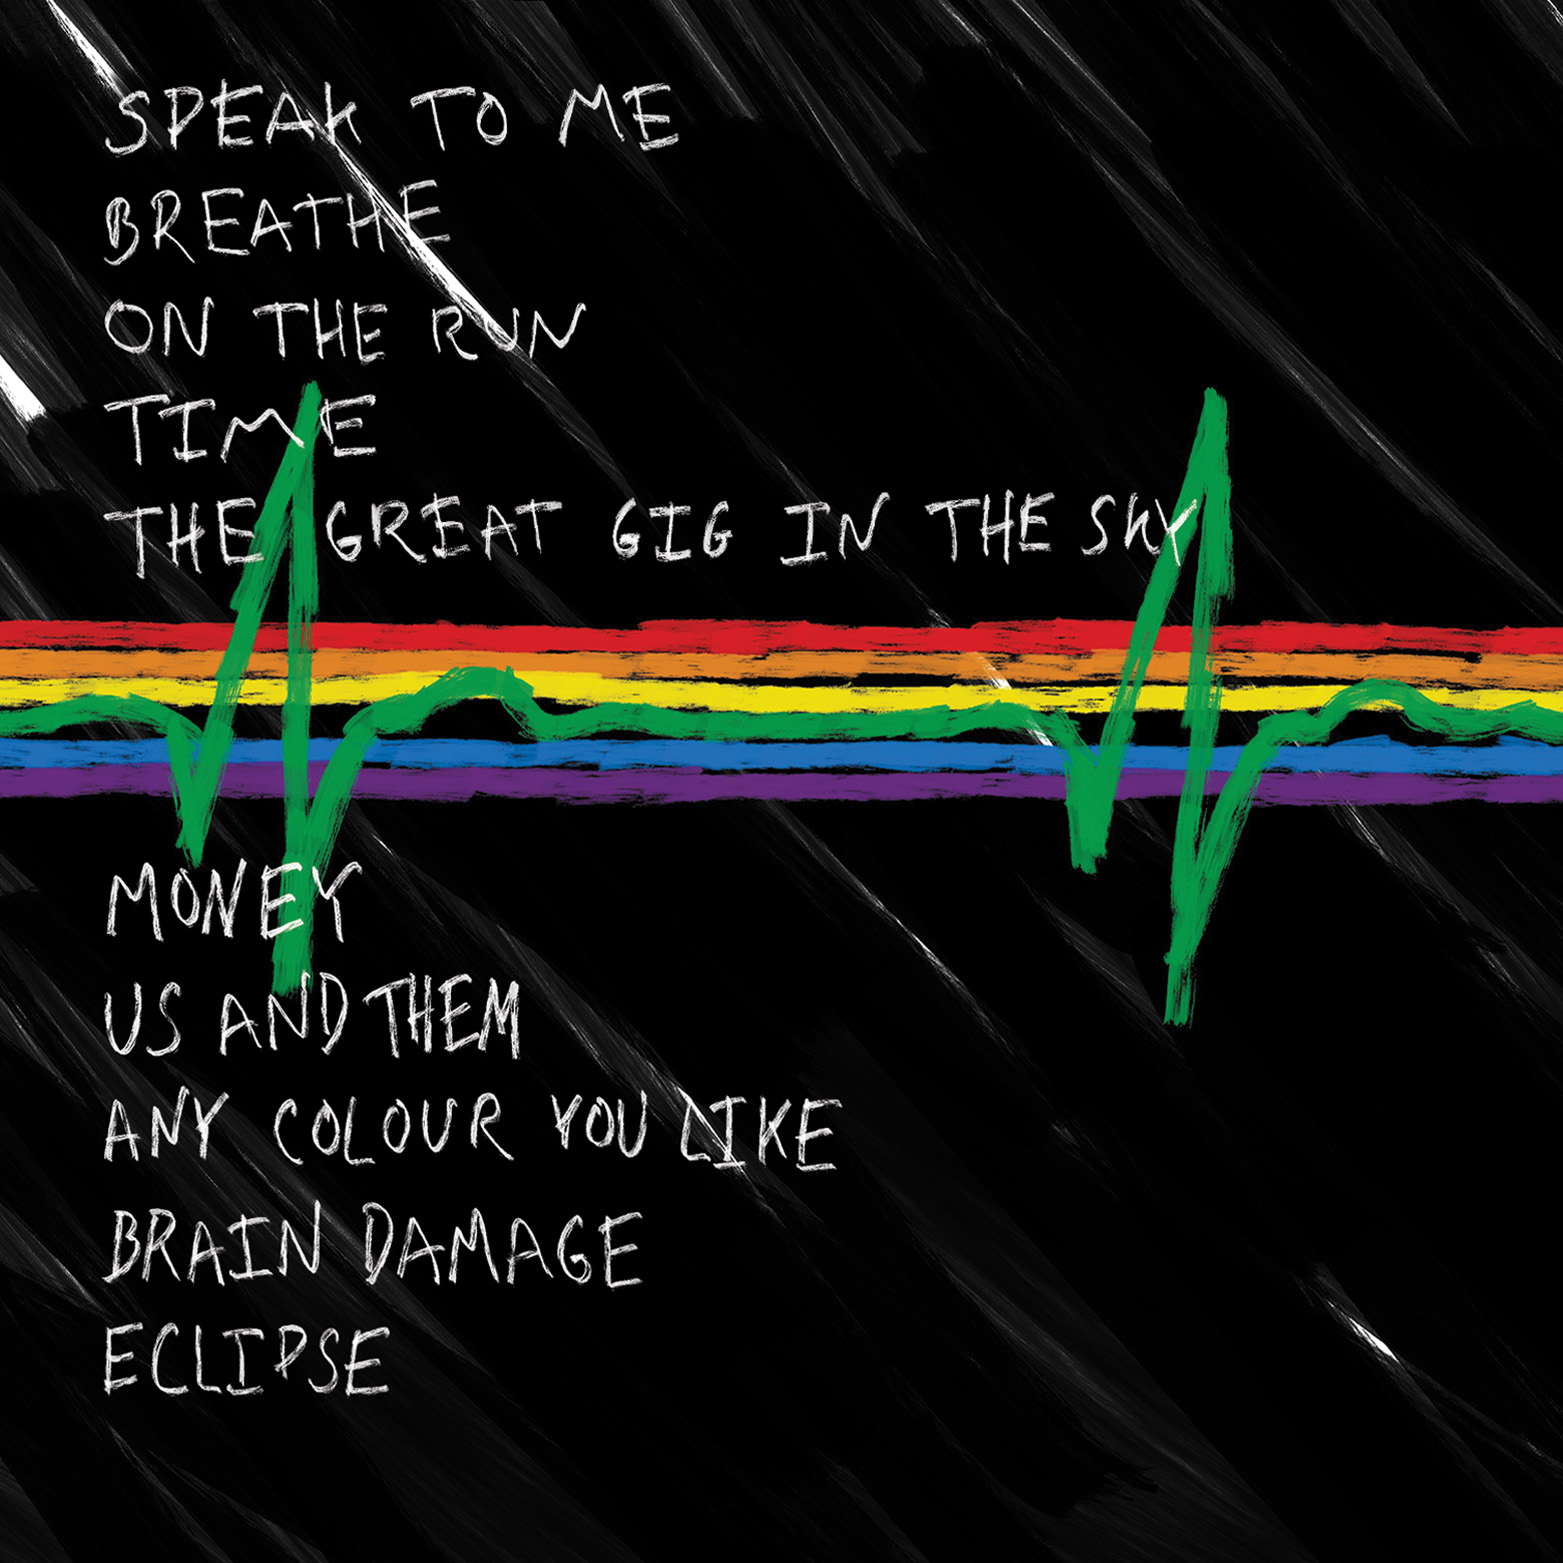 SPEAK TO ME
BREATHE
ON THE RUN
TIME
THE GREAT GIG IN THE SKY
MONEY
US AND THEM
ANY COLOUR YOU LIKE
BRAIN DAMAGE
ECLIPSE